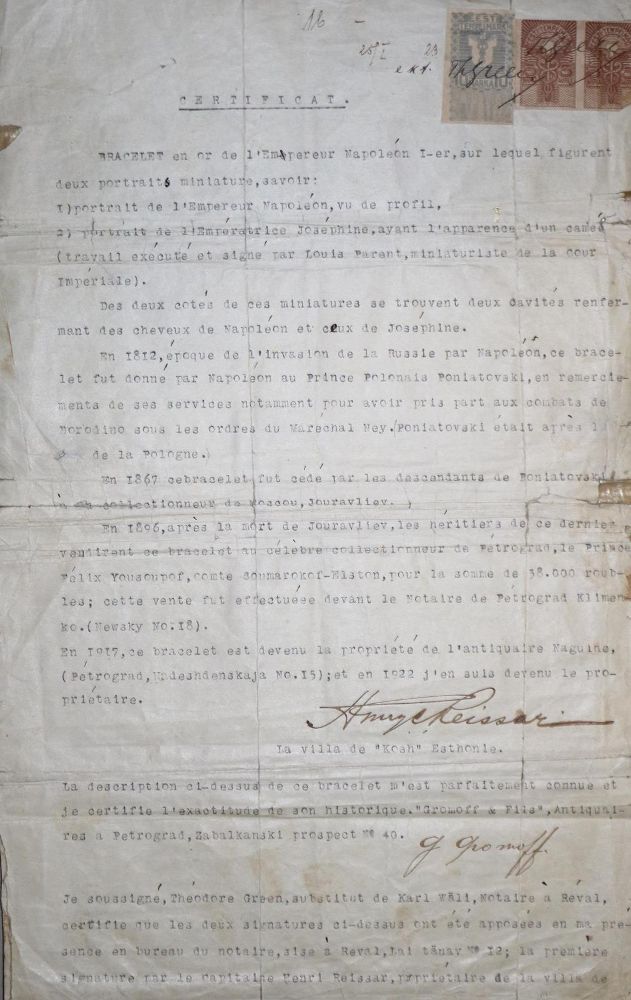 16 -
25/I 23
EESTI
10 MARKA 10
CERTIFICAT.
BRACELET en or de l'Empereur Napoléon I-er,sur lequel figurent
deux portraits miniature,savoir:
1)portrait de l'Empereur Napoléon,vu de profil,
2) portrait de l'Empératrice Joséphine,ayant l'apparence d'un camée
(travail exécuté et signé par Louis Parent,miniaturiste de la cour
Impériale).
Des deux cotés de ces miniatures se trouvent deux cavités renfer-
mant des cheveux de Napoléon et ceux de Joséphine.
En 1812,époque de l'invasion de la Russie par Napoléon,ce brace-
let fut donné par Napoléon au Prince Polonais Poniatovski,en remercie-
ments de ses services notamment pour avoir pris part aux combats de
Borodino sous les ordres du Maréchal Ney.(Poniatovski était après
de la Pologne.)
En 1867 cebracelet fut cédé par les descendants de Poniatovski
à un collectionneur de Moscou,Jouravliev.
En 1896,après la mort de Jouravliev,les héritiers de ce dernier
vendirent ce bracelet au célèbre collectionneur de Pétrograd,le Prince
Félix Yousoupof,comte Soumarokof-Elston,pour la somme de 38.000 roub-
les; cette vente fut effectuéee devant le Notaire de Pétrograd Klimen-
ko.(Newsky No.18).
En 1917,ce bracelet est devenu la propriété de l'antiquaire Naguine,
(Pétrograd,Nadeshdenskaja No.15);et en 1922 j'en suis devenu le pro-
priétaire.
La villa de "Kosh" Esthonie.
La description ci-dessus de ce bracelet m'est parfaitement connue et
je certifie l'exactitude de son historique."Gromoff & Fils",Antiquai-
res a Petrograd,Zabalkanski prospect No 40.
Je soussigné,Théodore Green,substitut de Karl Wäli,Notaire a Réval,
certifie que les deux signatures ci-dessus ont été apposées en ma pre-
sence en bureau du notaire,sise à Reval,Lai tänav No 12; la première
signature par le capitaine Henri Reissar,propriétaire de la villa de